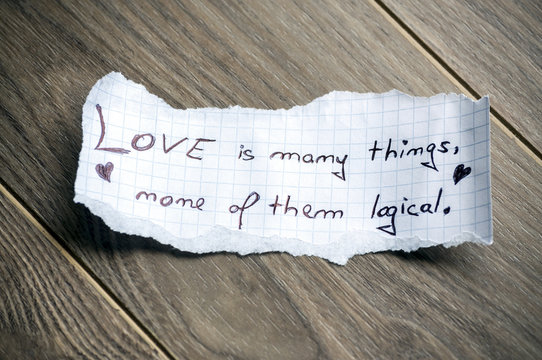 LOVE is many things,
none of them logical.